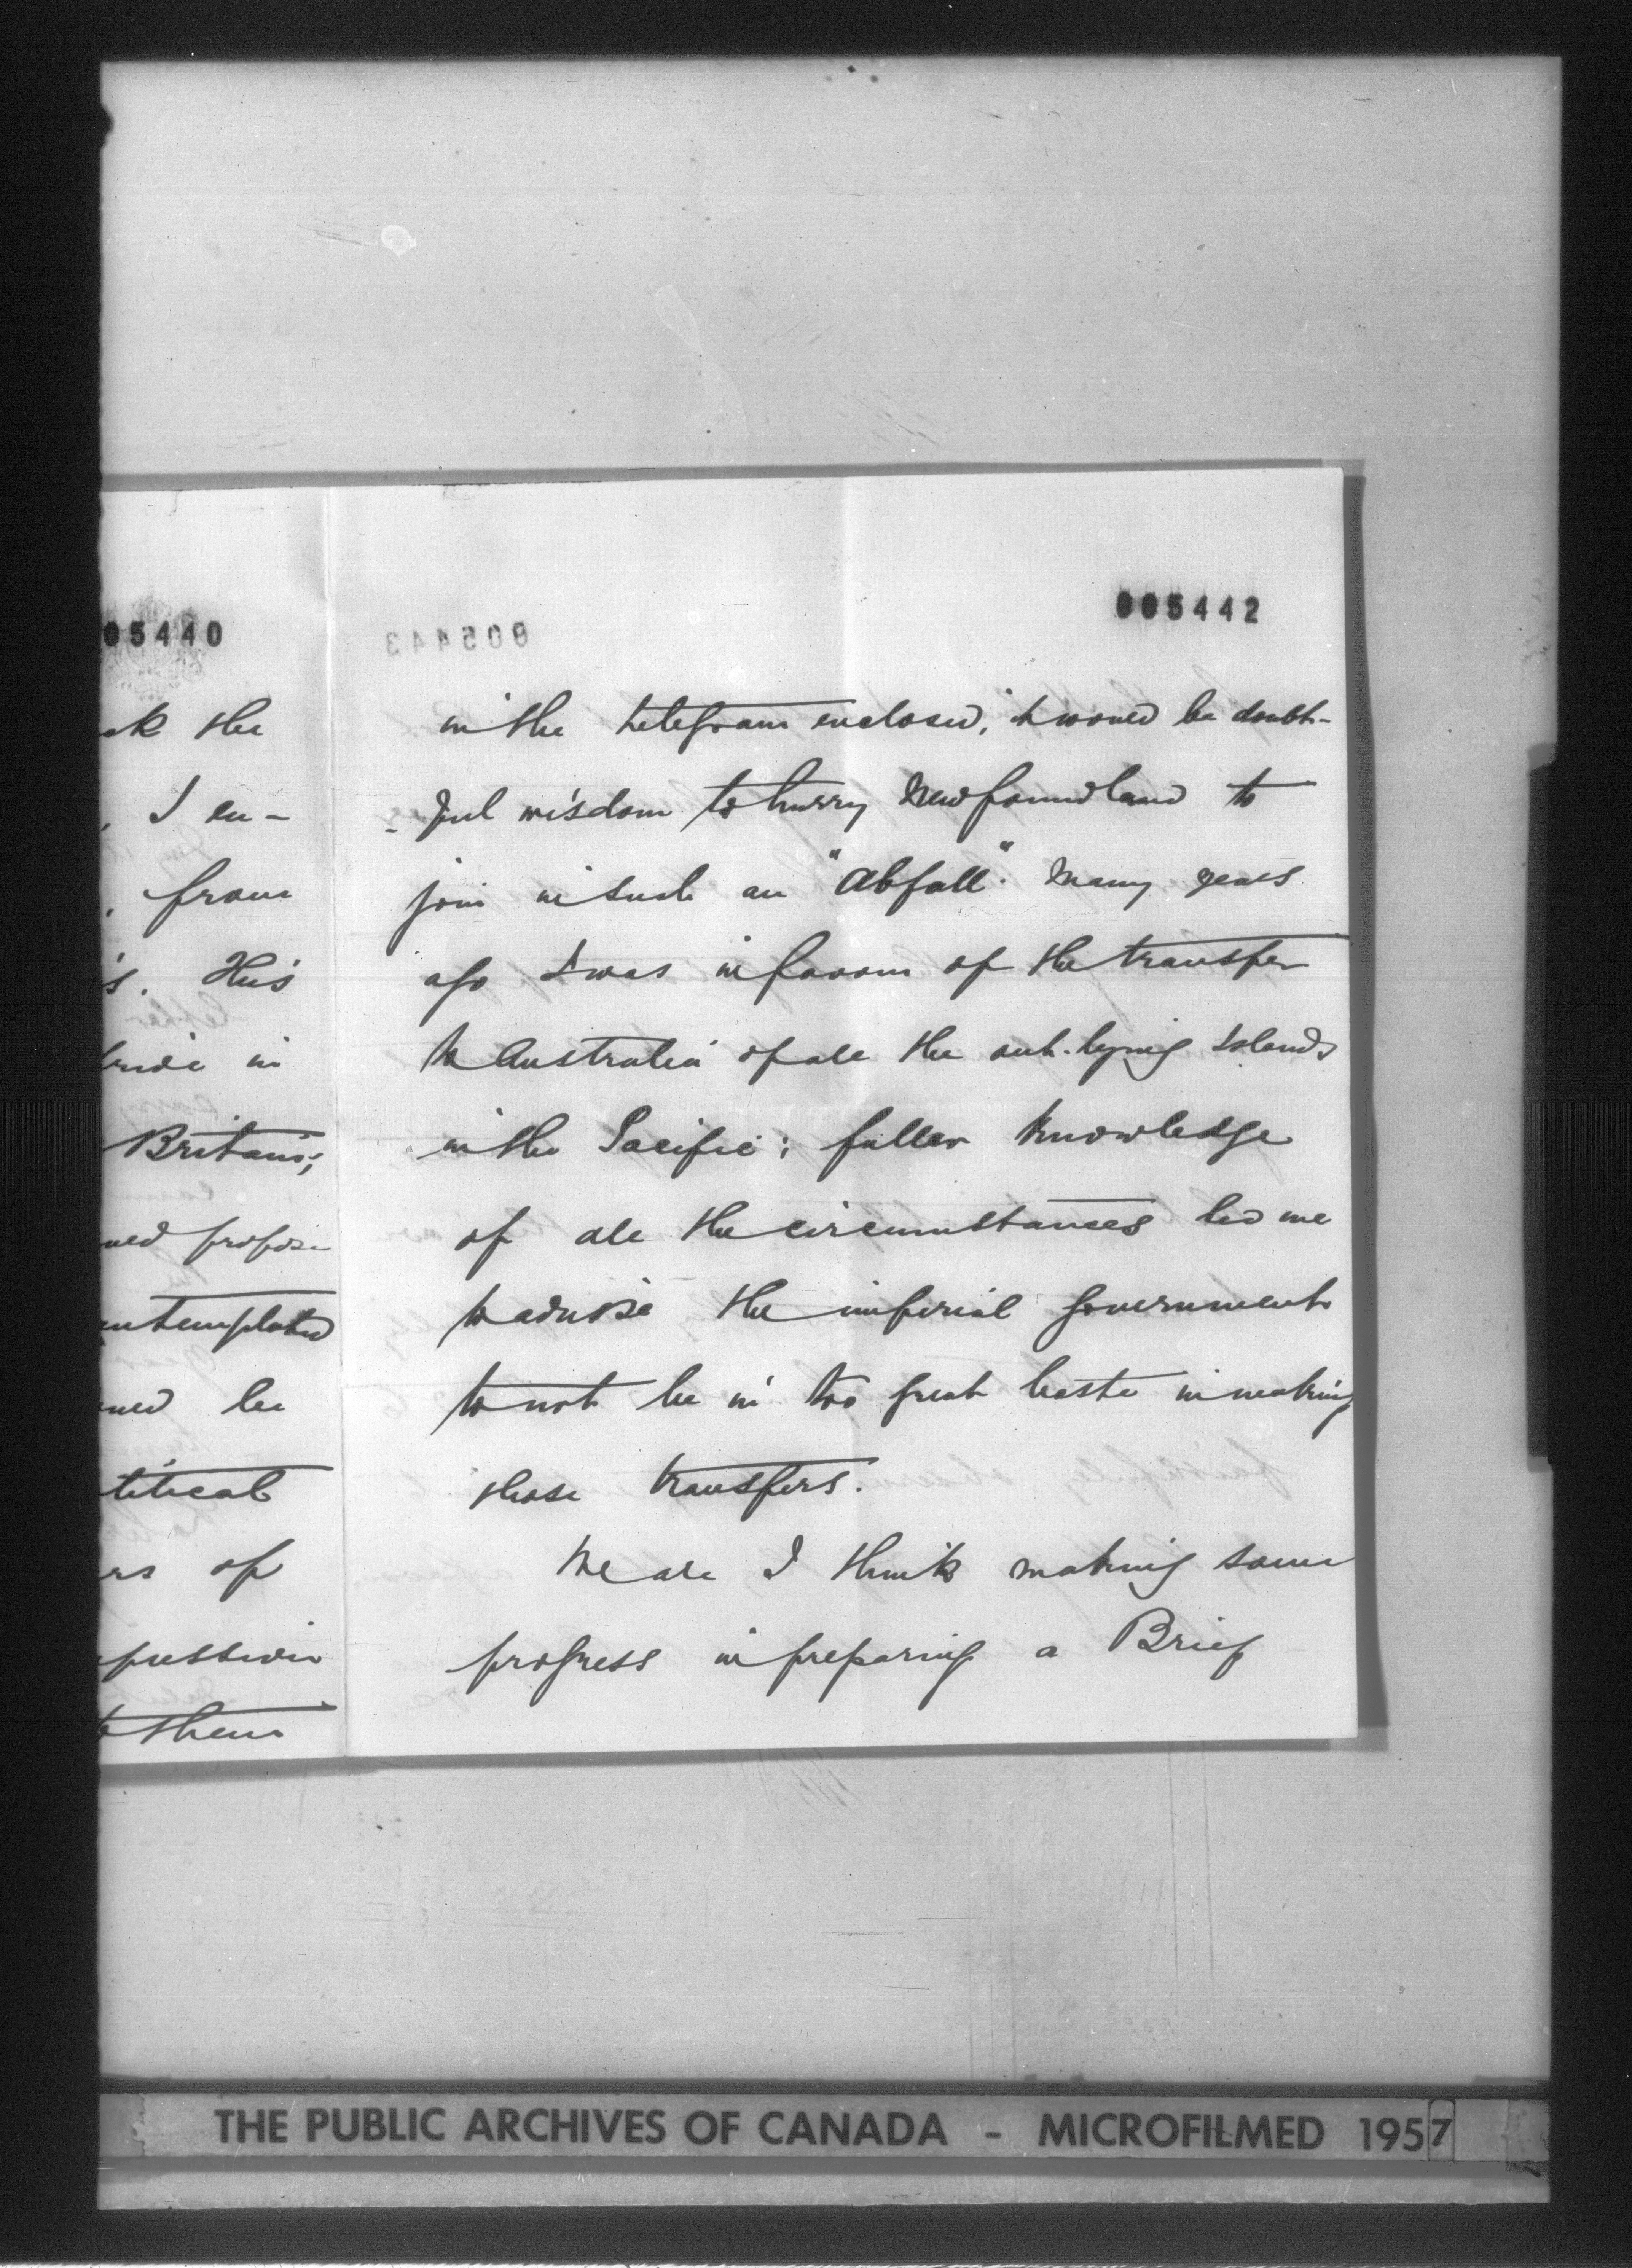 05440
ck the
, I en-
, from
's. His
pride in
Britain;
propose
contemplated
be
political
rs of
to them
005443
005442
in the telegram enclosed, it would be doubt-
-ful wisdom to hurry Newfoundland to
join in such an "Abfall". Many years
ago I was in favour of the transfer
to Australia of all the out-lying Islands
in the Pacific; fuller knowledge
of all the circumstances led me
to advise the imperial government
to not be in too great haste in making
those transfers.
We are I think making some
progress in preparing a Brief
THE PUBLIC ARCHIVES OF CANADA - MICROFILMED 1957